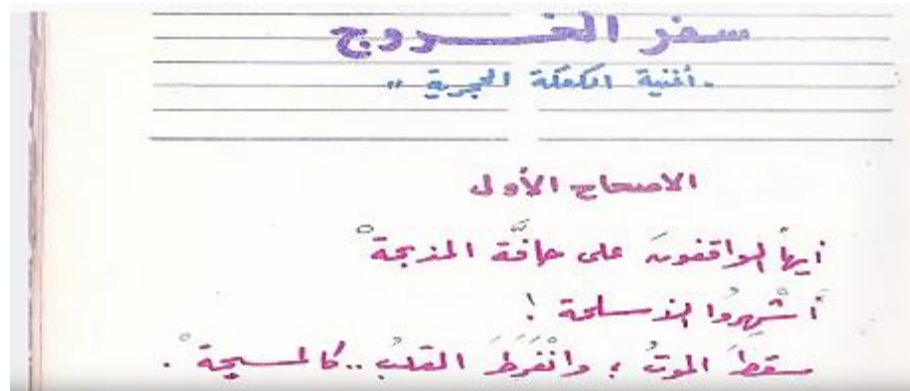 سفر الخروج
"أغنية الكعكة الحجرية"
الاصحاح الأول
أيها الواقفونَ على حافَّة المذبحةْ
أَشْهِروا الأسلحة !
سقطَ الموتُ ؛ وانْفَرَطَ القلبُ .. كالمسبحةْ .